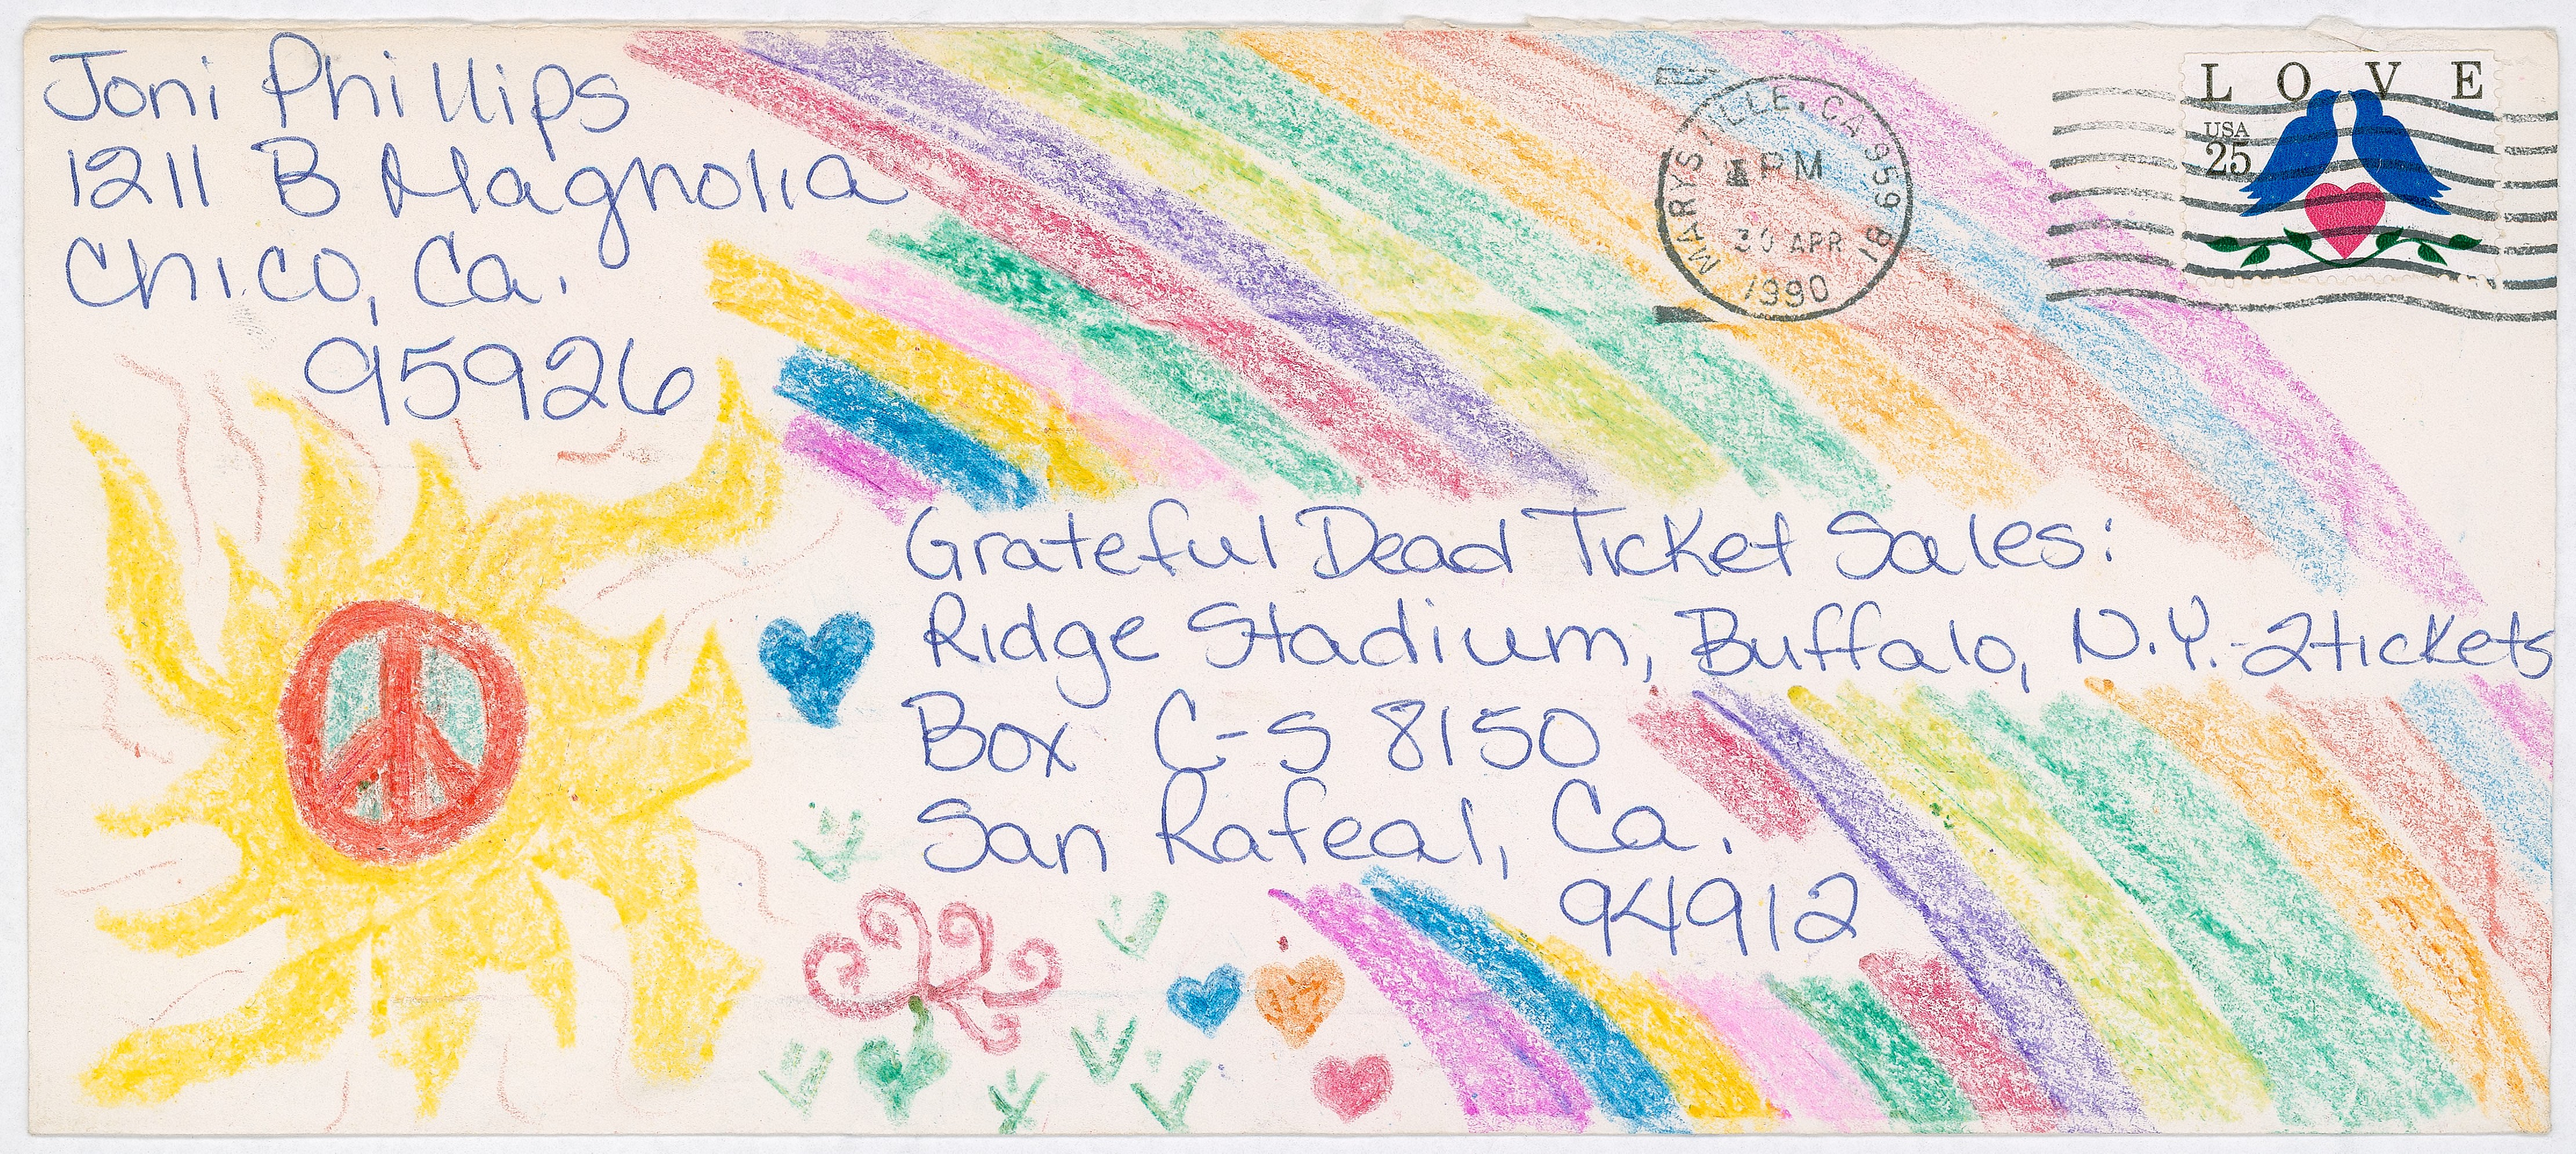 Joni Phillips
1211 B Magnolia
Chico, Ca.
95926
MARYSVILLE, CA 959
PM
30 APR
1990
LOVE
USA
25
Grateful Dead Ticket Sales:
Ridge Stadium, Buffalo, N.Y.-2tickets
Box C-S 8150
San Rafeal, Ca.
94912